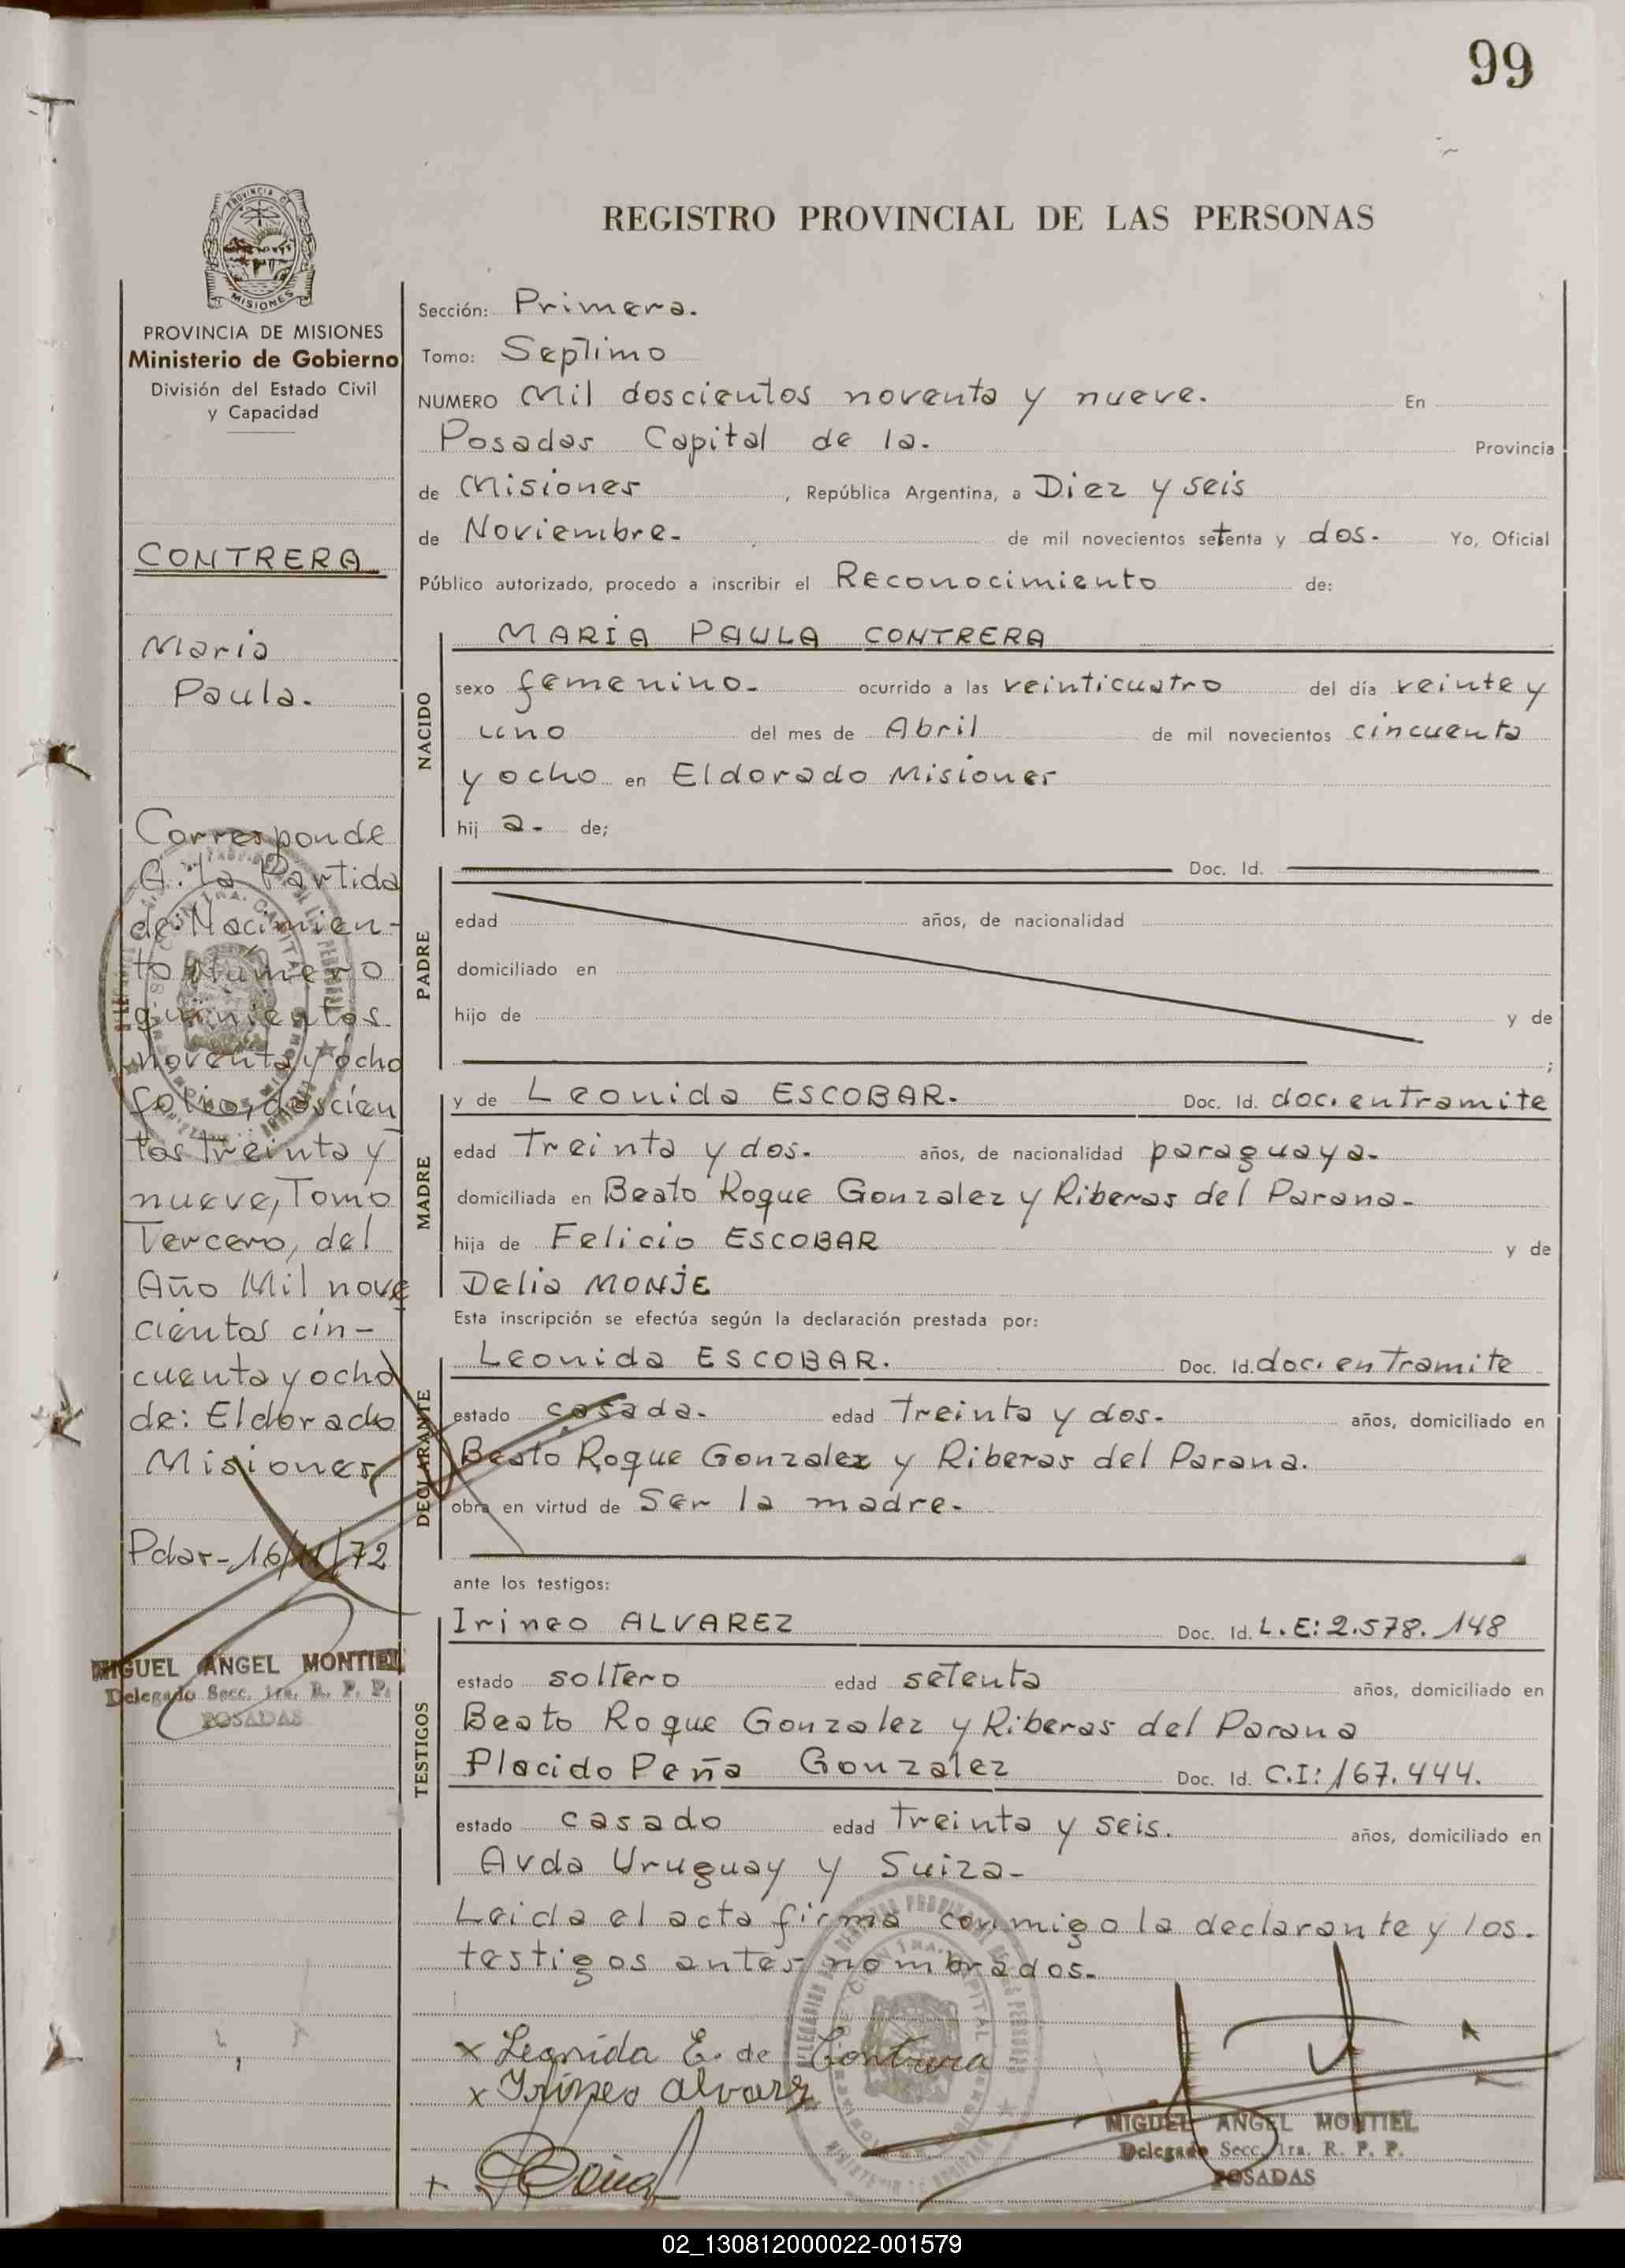 99
REGISTRO PROVINCIAL DE LAS PERSONAS
PROVINCIA DE MISIONES
Ministerio de Gobierno
División del Estado Civil
y Capacidad
CONTRERA
Maria
Paula.
Corresponde
A. la Partida
de: Nacimien-
to Número
quinientos
noventa y ocho
folio, doscien
tos treinta y
nueve, Tomo
Tercero, del
Año Mil nove
cientos cin-
cuenta y ocho
de: Eldorado
Misiones
Pdas-16/11/72
MIGUEL ANGEL MONTIEL
Delegado Secc. 1ra. R. P. P.
POSADAS
Sección: Primera.
Tomo: Septimo
NUMERO Mil doscientos noventa y nueve. En
Posadas Capital de la. Provincia
de Misiones , República Argentina, a Diez y seis
de Noviembre. de mil novecientos setenta y dos. Yo, Oficial
Público autorizado, procedo a inscribir el Reconocimiento de:
NACIDO
MARIA PAULA CONTRERA
sexo femenino. ocurrido a las veinticuatro del día veinte y
uno del mes de Abril de mil novecientos cincuenta
y ocho en Eldorado Misiones
hij a. de;
PADRE
Doc. Id.
edad años, de nacionalidad
domiciliado en
hijo de y de
;
MADRE
y de Leonida ESCOBAR. Doc. Id. doc. en tramite
edad Treinta y dos. años, de nacionalidad paraguaya.
domiciliada en Beato Roque Gonzalez y Riberas del Parana.
hija de Felicio ESCOBAR y de
Delia MONJE
Esta inscripción se efectúa según la declaración prestada por:
DECLARANTE
Leonida ESCOBAR. Doc. Id. doc. en Tramite
estado casada. edad Treinta y dos. años, domiciliado en
Beato Roque Gonzalez y Riberas del Parana.
obra en virtud de Ser la madre.
ante los testigos:
TESTIGOS
Irineo ALVAREZ Doc. Id. L.E: 2.578.148
estado soltero edad setenta años, domiciliado en
Beato Roque Gonzalez y Riberas del Parana
Placido Peña Gonzalez Doc. Id. C.I: 167.444.
estado casado edad Treinta y seis. años, domiciliado en
Avda Uruguay y Suiza-
Leida el acta firma conmigo la declarante y los.
testigos antes nombrados.
x Leonida E. de Contrera
x Irineo Alvarez
+ Peña
MIGUEL ANGEL MONTIEL
Delegado Secc. 1ra. R. P. P.
POSADAS
02_130812000022-001579